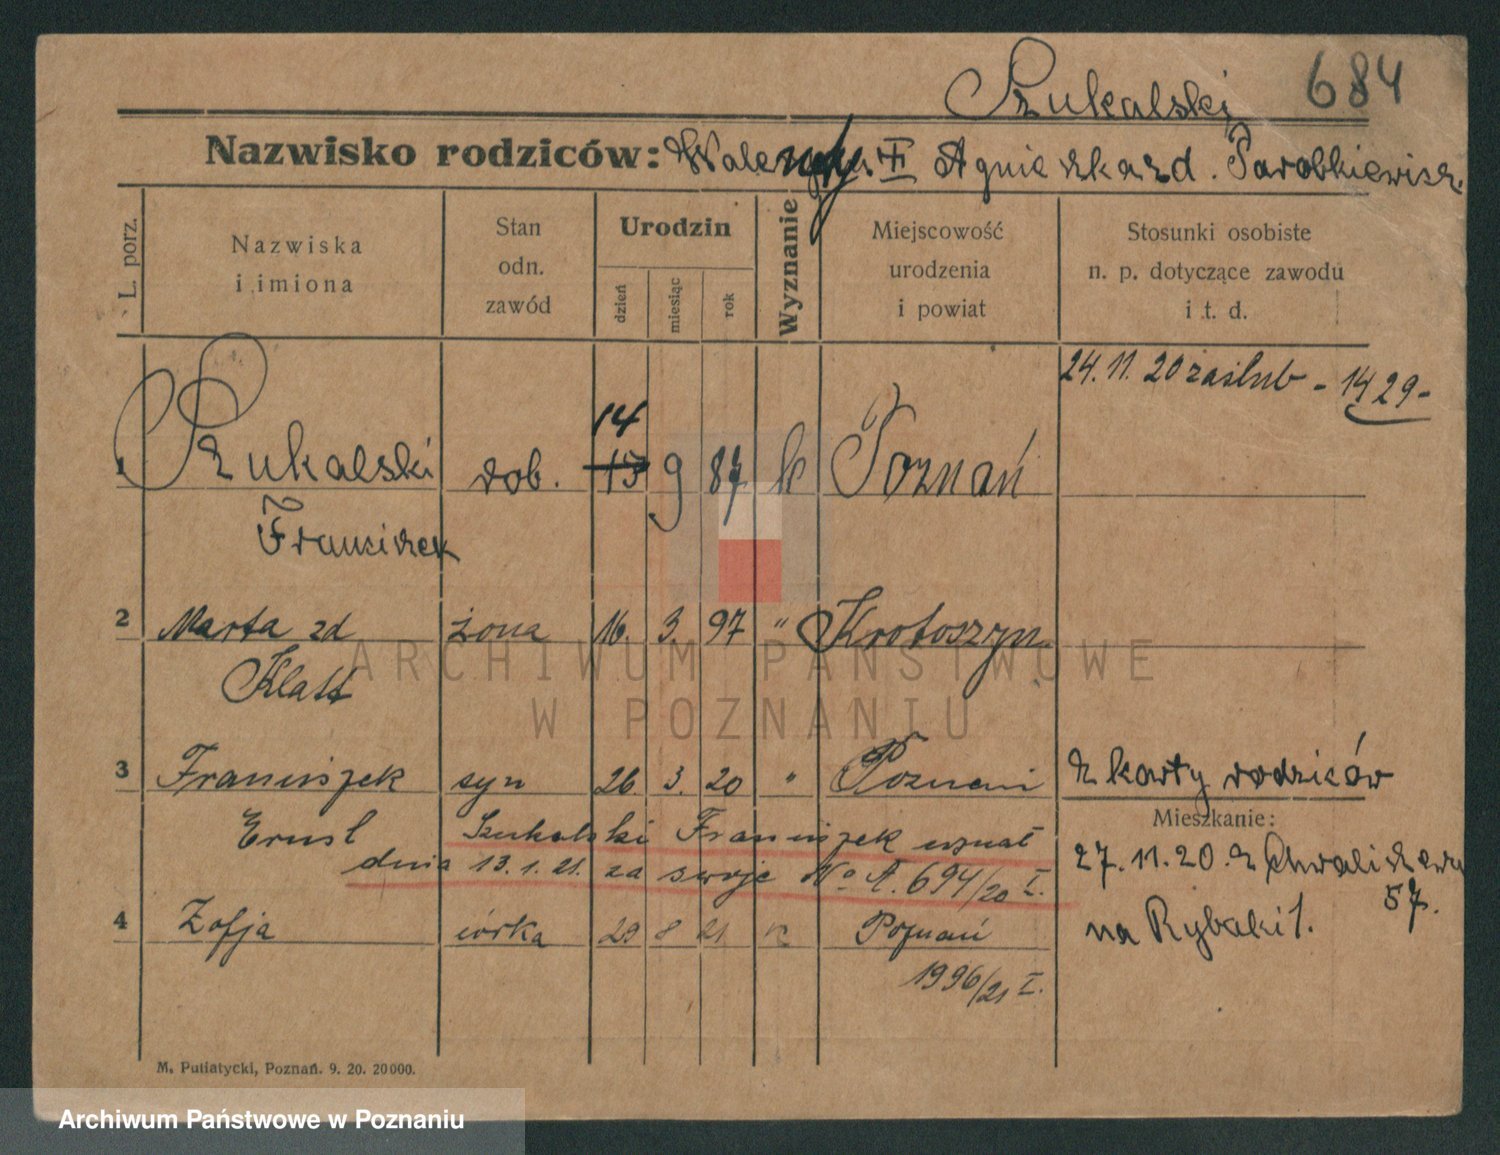 684
Szukalski
Nazwisko rodziców: Agnieszka zd. Parobkiewicz.
L. porz.
Nazwiska i imiona
Stan odn. zawód
Urodzin
dzień
miesiąc
rok
Wyznanie
Miejscowość urodzenia i powiat
Stosunki osobiste n. p. dotyczące zawodu i t. d.
24. 11. 20 zaślub - 1429-
14
1 Szukalski rob. 15 9 87 k Poznań
Franciszek
2 Marta zd żona 16. 3. 97 " Krotoszyn.
Klatt
3 Franciszek syn 26 3. 20 " Poznań z karty rodziców
Mieszkanie:
Ernst Szukalski Franciszek uznał
dnia 13. 1. 21. za swoje No A. 694/20 I.
27. 11. 20. z Chwaliszewa
57.
4 Zofja córka 29 8 21 k Poznań
na Rybaki 1.
1996/21 I.
M. Putiatycki, Poznań. 9. 20. 20000.
ARCHIWUM PAŃSTWOWE
W POZNANIU
Archiwum Państwowe w Poznaniu